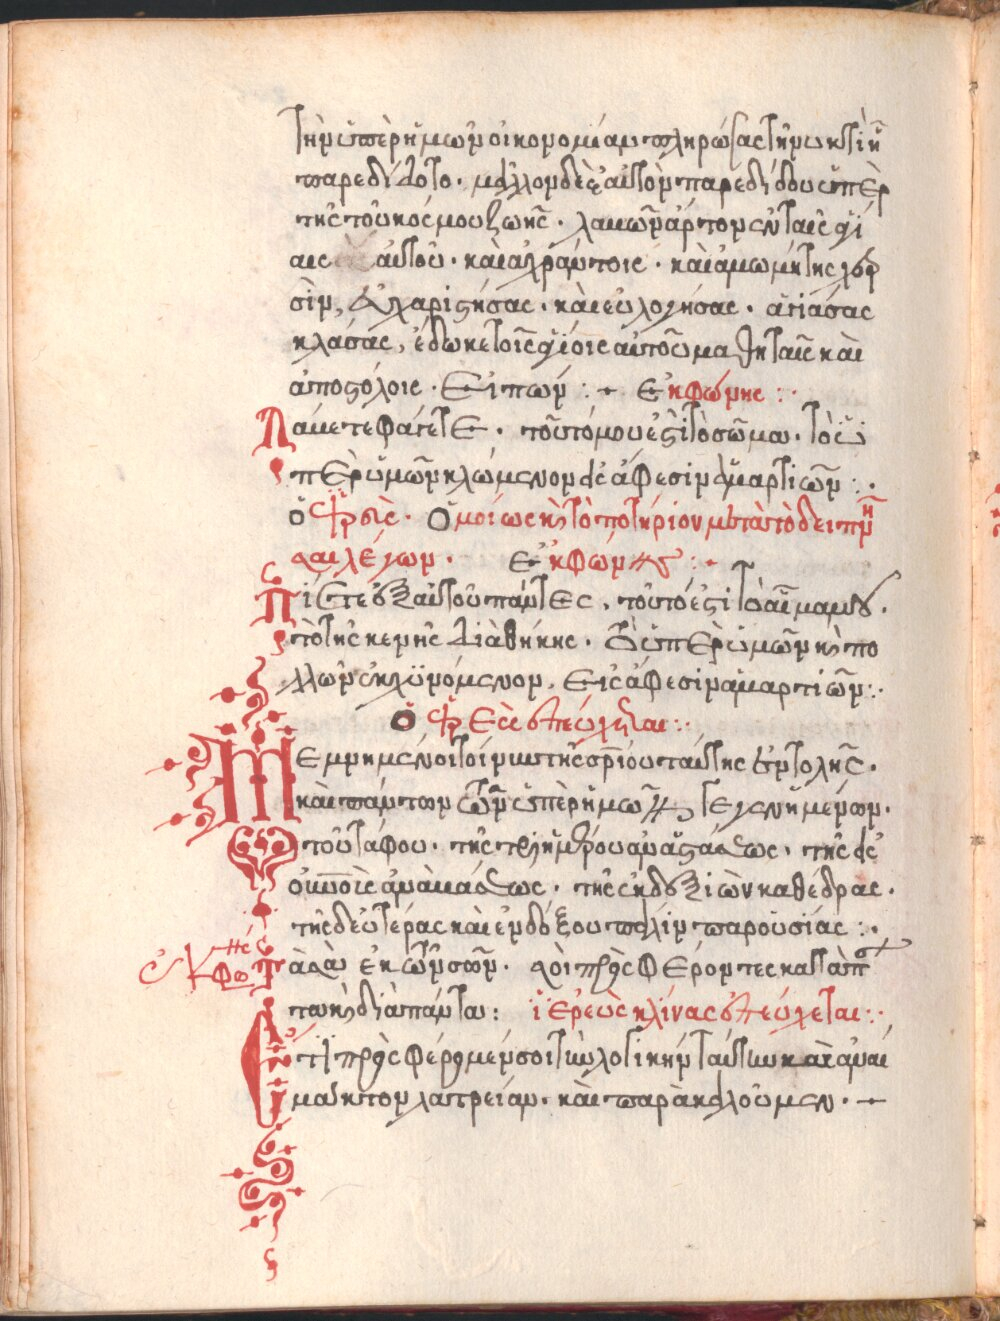 τὴν ὑπὲρ ἡμῶν οἰκονομίαν πληρώσας τῆ νυκτὶ ἧ
παρεδίδοτο · μᾶλλον δὲ ἑαὐτὸν παρεδίδου ὑπὲρ
τῆς τοῦ κόσμου ζωῆς · λαβὼν ἄρτον ἐν ταῖς ἁγί
αις αὐτοῦ · καὶ ἀχράντοις · καὶ ἀμωμήτης χερ
σὶν, εὐχαριστήσας · καὶ εὐλογήσας · ἁγιάσας
κλάσας, ἔδωκε τοῖς ἁγίοις αὐτοῦ μαθηταῖς καὶ
ἀποστόλοις · Εἰπών : · Ἐκφώνης : ·
Λάβετε φάγετε · τοῦτό μου ἐστὶ τὸ σῶμα · τὸ ὑ
πὲρ ὑμῶν κλώμενον εἰς ἄφεσιν ἁμαρτιῶν : ·
Ὁμοίως κὶ τὸ ποτήριον μετὰ τὸ δειπνῆ
σαι λέγων · Ἐκφών : ·
Πίετε ἐξ αὐτοῦ πάντες, τοῦτό ἐστὶ τὸ αἷμα μου ·
τὸ τῆς κενῆς διαθήκης · τὸ ὑπὲρ ὑμῶν κὶ πο
λλῶν ἐκχϋνόμενον, εἰς ἄφεσιν ἁμαρτιῶν : ·
Ὁ ἱερεὺς ἐπεύχεται : ·
Μεμνημένοι τοίνυν τῆς σρίου ταύτης ἐντολῆς ·
καὶ πάντων τῶν ὑπὲρ ἡμῶν γεγενημένων ·
τοῦ τάφου · τῆς τριημέρου ἀναστάσεως · τῆς εἰς
οὐνοὺς ἀναβάσεως · τῆς ἐκ δεξιῶν καθέδρας ·
τῆς δευτέρας καὶ ἐνδόξου πάλιν παρουσίας : ·
Τὰ σὰ ἐκ τῶν σῶν · σοὶ προσφέροντες κατὰ πάν
τα κὶ διὰ πάντα : ἱερεὺς κλίνας ἐπεύχεται : ·
Ἔτι προσφέρομέν σοι τὴν λογικὴν ταύτην καὶ ἀναί
μακτον λατρείαν · καὶ παρακαλοῦμεν ·